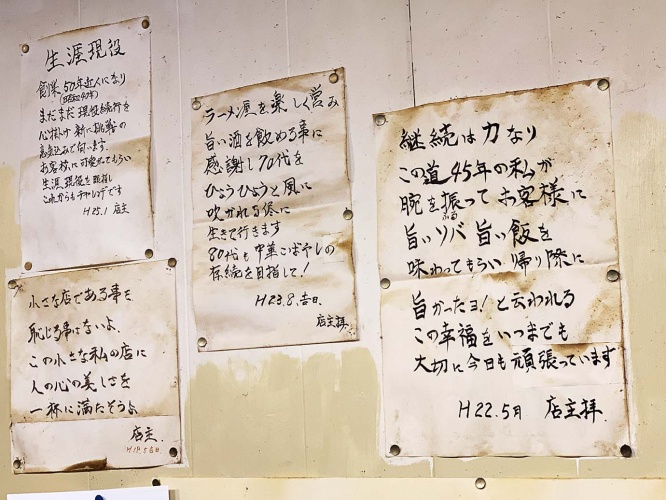 生涯現役
創業50年近くになり
(昭和40年)
まだまだ現役続行を
心掛け 新に挑戦の
意気込みで伺います
お客様に可愛がてもらい
生涯現役を目指し
これからもチャレンヂです
H25.1 店主
小さな店である事を
恥じる事はないよ、
この小さな私の店に
人の心の美しさを
一杯に満たそうよ
店主.
H19.5吉日
ラーメン屋を楽しく営み
旨い酒を飲める事に
感謝し70代を
ひょうひょうと風に
吹かれる侭に
生きて行きます
80代も中華こばやしの
存続を目指して!
H23.8.吉日.
店主拝.
継続は力なり
この道45年の私が
腕を振って お客様に
ふる
旨いソバ 旨い飯を
味わってもらい 帰り際に
旨かったヨ!と云われる
この幸福をいつまでも
大切に今日も頑張っています
H22.5月 店主拝.